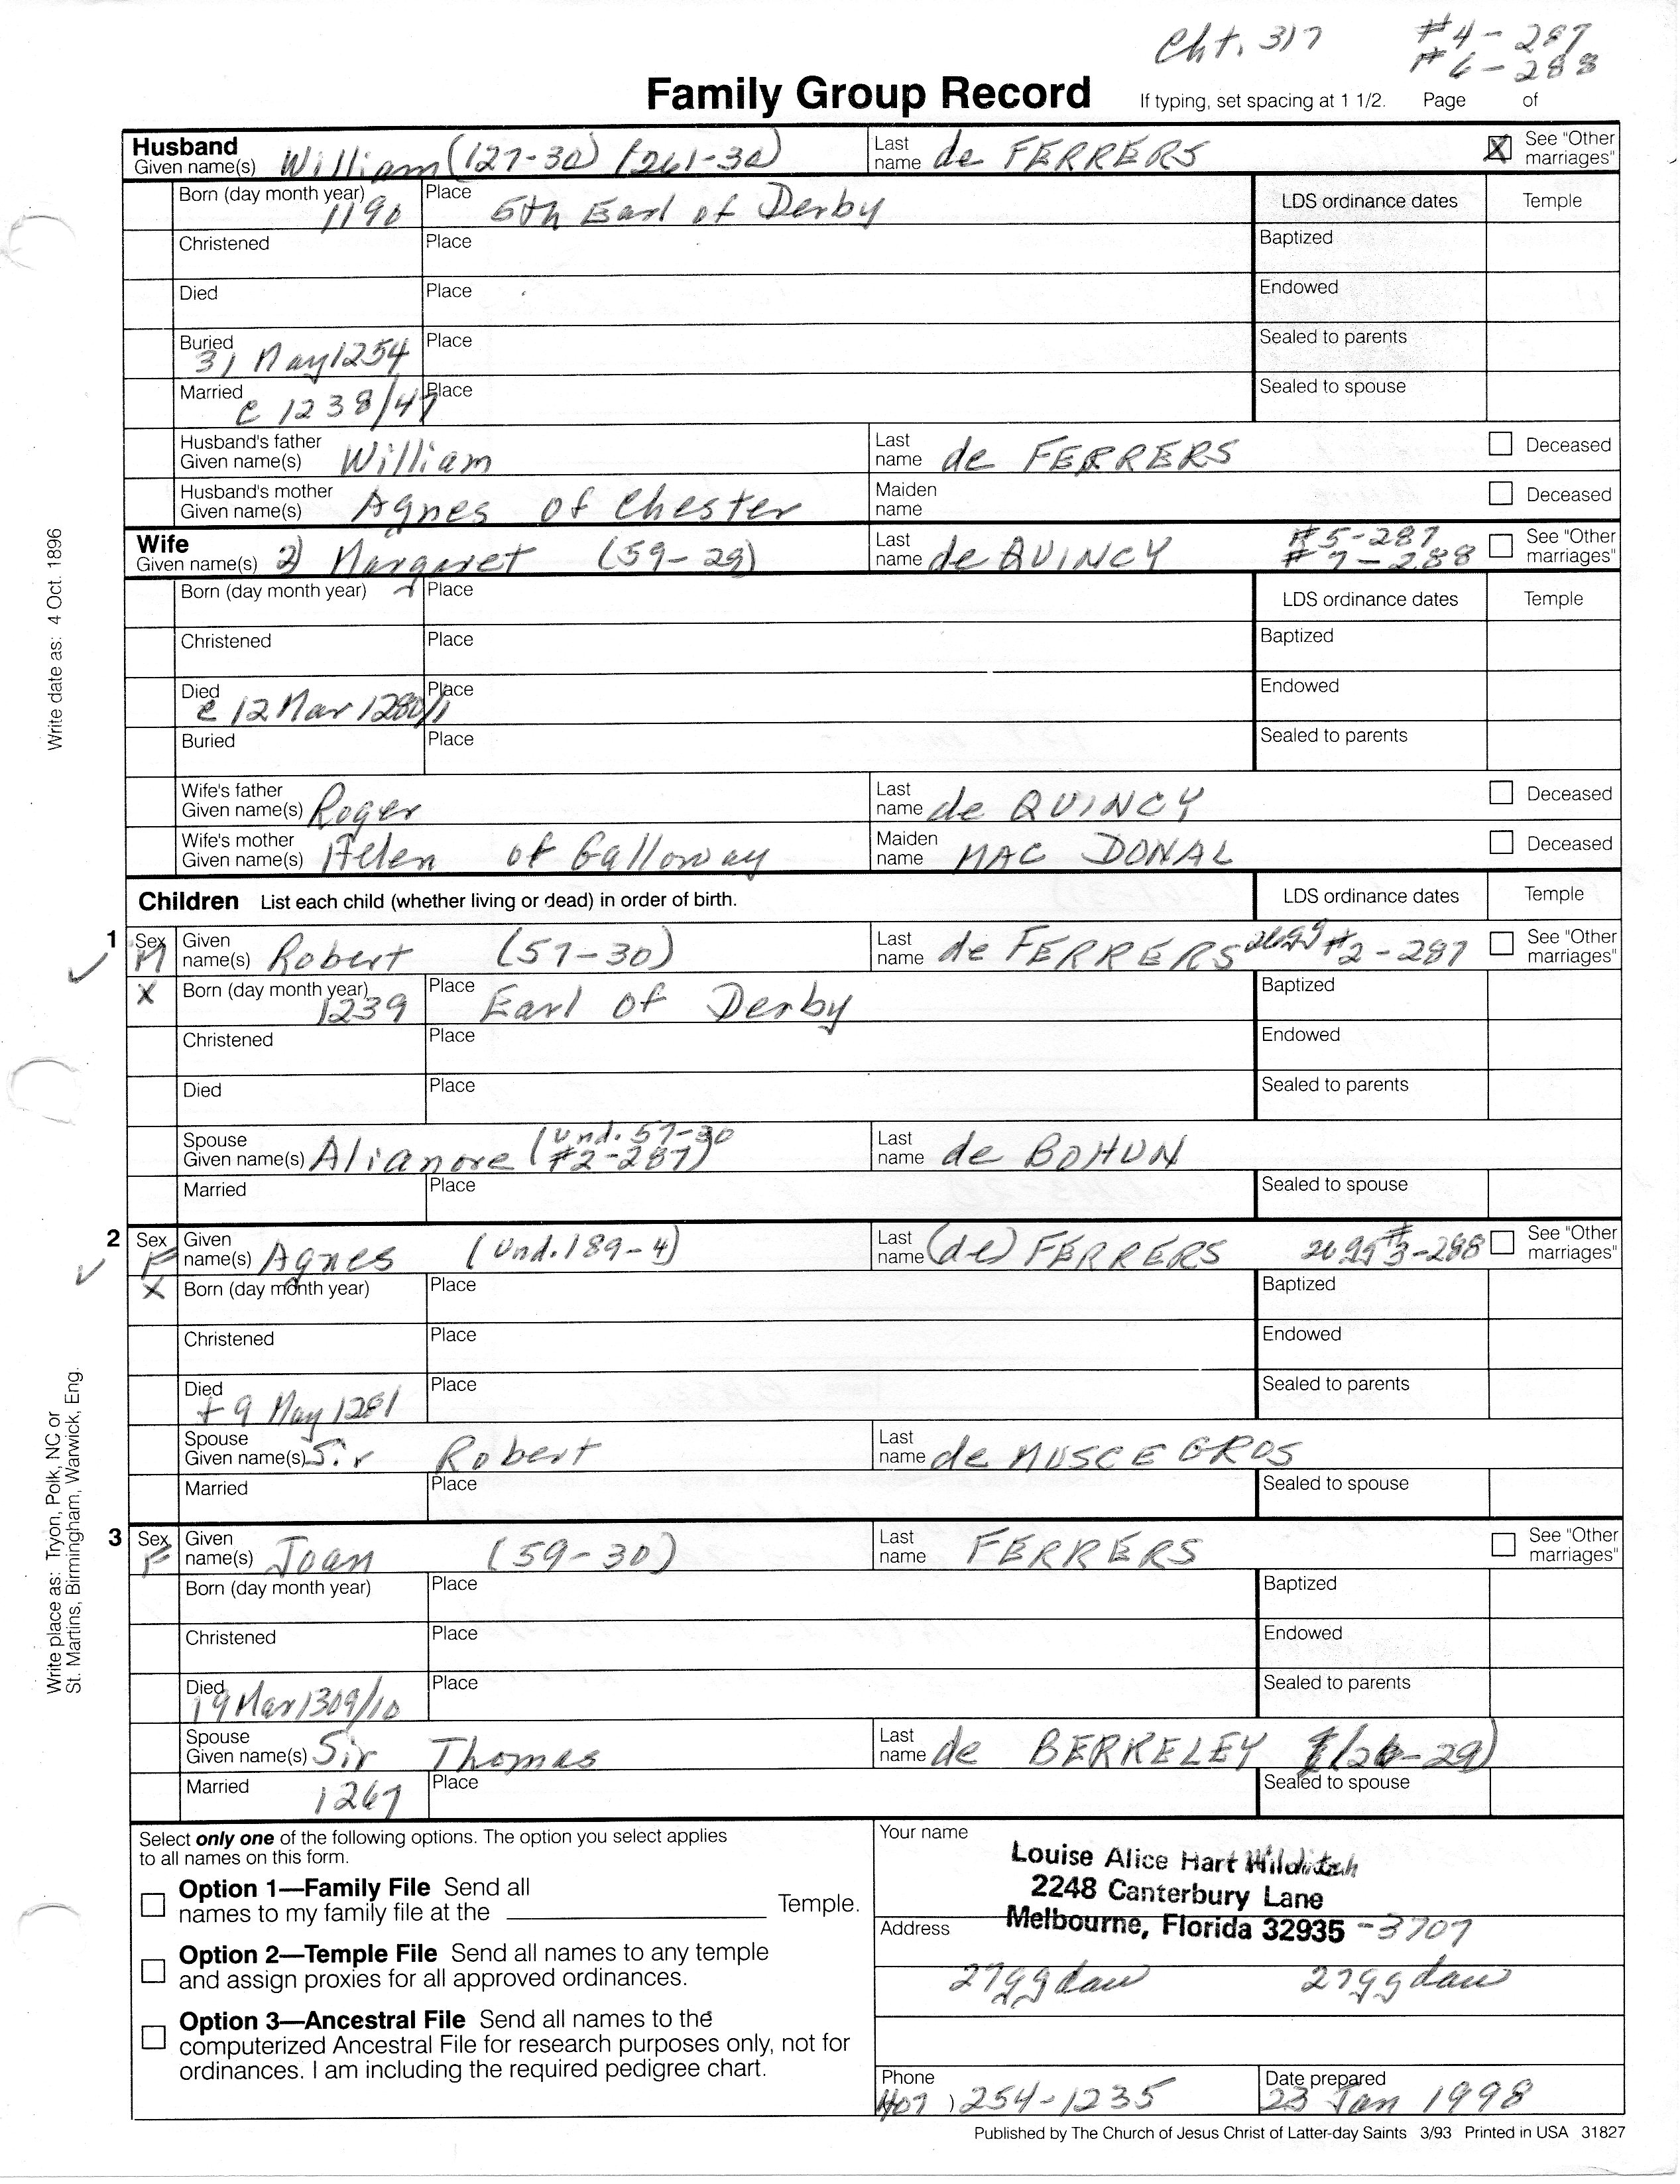 Cht. 317 #4-287
#6-288
Family Group Record If typing, set spacing at 1 1/2. Page of
Husband
Given name(s) William (127-30) (261-30) Last name de FERRERS X See "Other marriages"
Born (day month year) 1190 Place 5th Earl of Derby LDS ordinance dates Temple
Christened Place Baptized
Died Place Endowed
Buried 31 May 1254 Place Sealed to parents
Married c 1238/47 Place Sealed to spouse
Husband's father Given name(s) William Last name de FERRERS Deceased
Husband's mother Given name(s) Agnes of Chester Maiden name Deceased
Wife
Given name(s) 2) Margaret (59-29) Last name de QUINCY #5-287 #7-288 See "Other marriages"
Born (day month year) Place LDS ordinance dates Temple
Christened Place Baptized
Died c 12 Mar 1280/1 Place Endowed
Buried Place Sealed to parents
Wife's father Given name(s) Roger Last name de QUINCY Deceased
Wife's mother Given name(s) Helen of Galloway Maiden name MAC DONAL Deceased
Children List each child (whether living or dead) in order of birth. LDS ordinance dates Temple
1 Sex M Given name(s) Robert (57-30) Last name de FERRERS #2-287 See "Other marriages"
X Born (day month year) 1239 Place Earl of Derby Baptized
Christened Place Endowed
Died Place Sealed to parents
Spouse Given name(s) Alianore (Und. 57-30 #2-287) Last name de BOHUN
Married Place Sealed to spouse
2 Sex F Given name(s) Agnes (Und. 189-4) Last name (de) FERRERS #3-288 See "Other marriages"
X Born (day month year) Place Baptized
Christened Place Endowed
Died + 9 May 1281 Place Sealed to parents
Spouse Given name(s) Sir Robert Last name de MUSCEGROS
Married Place Sealed to spouse
3 Sex F Given name(s) Joan (59-30) Last name FERRERS See "Other marriages"
Born (day month year) Place Baptized
Christened Place Endowed
Died 19 Mar 1309/10 Place Sealed to parents
Spouse Given name(s) Sir Thomas Last name de BERKELEY (26-29)
Married 1267 Place Sealed to spouse
Select only one of the following options. The option you select applies
to all names on this form.
Option 1—Family File Send all
names to my family file at the Temple.
Option 2—Temple File Send all names to any temple
and assign proxies for all approved ordinances.
Option 3—Ancestral File Send all names to the
computerized Ancestral File for research purposes only, not for
ordinances. I am including the required pedigree chart.
Your name Louise Alice Hart
2248 Canterbury Lane
Address Melbourne, Florida 32935 -3707
27gg dau 27gg dau
Phone 407 ) 254-1235 Date prepared 23 Jan 1998
Published by The Church of Jesus Christ of Latter-day Saints 3/93 Printed in USA 31827
Write date as: 4 Oct. 1896
Write place as: Tryon, Polk, NC or
St. Martins, Birmingham, Warwick, Eng.